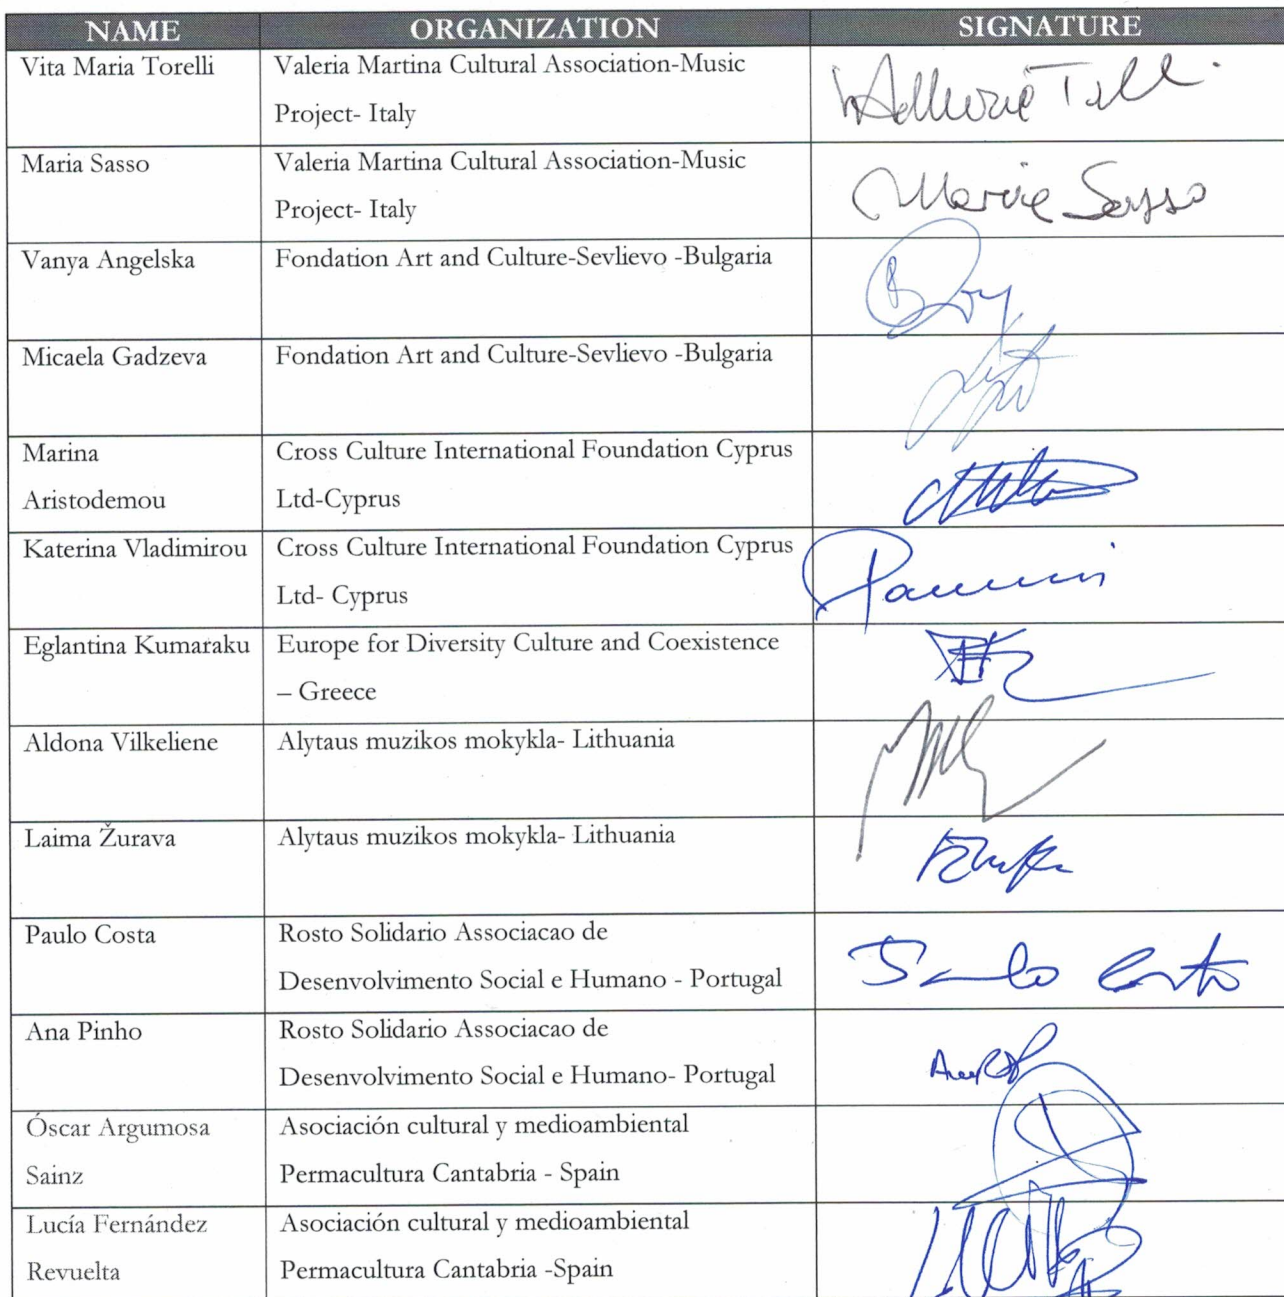 NAME ORGANIZATION SIGNATURE
Vita Maria Torelli Valeria Martina Cultural Association-Music
Project- Italy
Maria Sasso Valeria Martina Cultural Association-Music
Project- Italy
Maria Sasso
Vanya Angelska Fondation Art and Culture-Sevlievo -Bulgaria
Micaela Gadzeva Fondation Art and Culture-Sevlievo -Bulgaria
Marina Cross Culture International Foundation Cyprus
Aristodemou Ltd-Cyprus
Katerina Vladimirou Cross Culture International Foundation Cyprus
Ltd- Cyprus
Eglantina Kumaraku Europe for Diversity Culture and Coexistence
– Greece
Aldona Vilkeliene Alytaus muzikos mokykla- Lithuania
Laima Žurava Alytaus muzikos mokykla- Lithuania
Paulo Costa Rosto Solidario Associacao de
Desenvolvimento Social e Humano - Portugal
Ana Pinho Rosto Solidario Associacao de
Desenvolvimento Social e Humano- Portugal
Óscar Argumosa Asociación cultural y medioambiental
Sainz Permacultura Cantabria - Spain
Lucía Fernández Asociación cultural y medioambiental
Revuelta Permacultura Cantabria -Spain